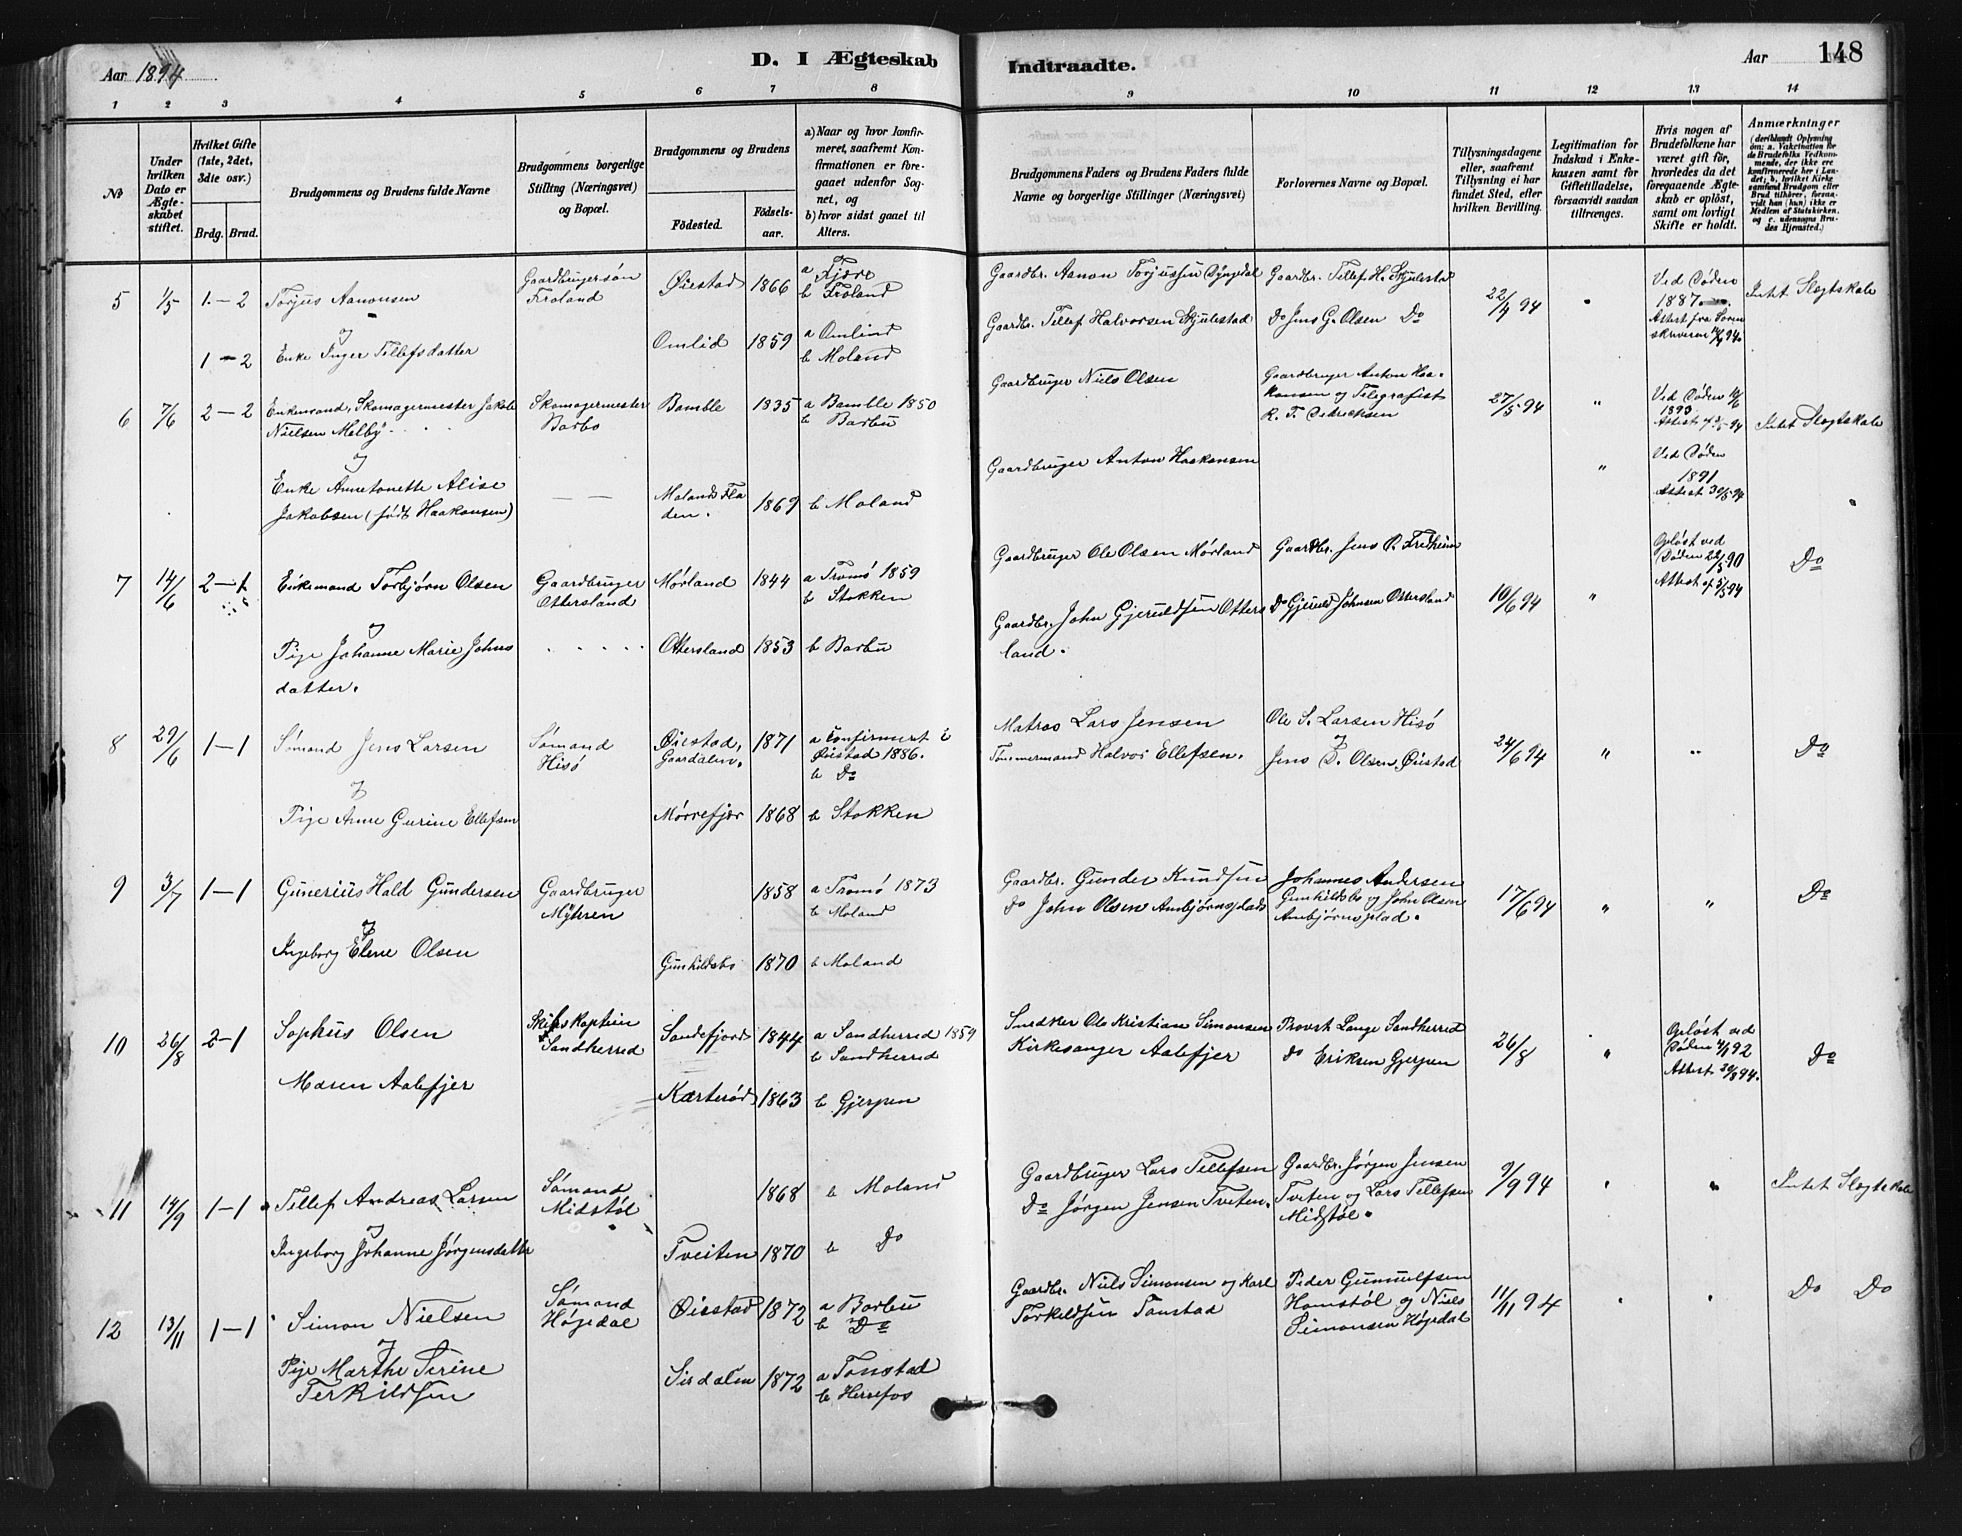 Aar 1894
D. I Ægteskab
Indtraadte.
Aar
148
1 2 3 4 5 6 7 8 9 10 11 12 13 14
No
Under hvilken Dato er Ægteskabet stiftet.
Hvilket Gifte (1ste, 2det, 3die osv.)
Brdg. Brud.
Brudgommens og Brudens fulde Navne
Brudgommens borgerlige Stilling (Næringsvei) og Bopæl.
Brudgommens og Brudens
Fødested.
Fødselsaar.
a) Naar og hvor konfirmeret, saafremt Konfirmationen er foregaaet udenfor Sognet, og
b) hvor sidst gaaet til Alters.
Brudgommens Faders og Brudens Faders fulde Navne og borgerlige Stillinger (Næringsvei)
Forlovernes Navne og Bopæl.
Tillysningsdagene eller, saafremt Tillysning ei har fundet Sted, efter hvilken Bevilling.
Legitimation for Indskud i Enkekassen samt for Giftetilladelse, forsaavidt saadan tiltrænges.
Hvis nogen af Brudefolkene har været gift før, hvorledes da det foregaaende Ægteskab er opløst, samt om lovligt Skifte er holdt.
Anmærkninger
(deriblandt Oplysning om: a. Vakcination for de Brudefolks Vedkommende, der ikke ere konfirmerede her i Landet; b. hvilket Kirkesamfund Brudgom eller Brud tilhører, forsaavidt han (hun) ikke er Medlem af Statskirken, og c. udensogns Brudes Hjemsted.)
5 1/5 1 - 2 Torjus Aanonsen
Gaardbrugersøn Froland
Øiestad 1866 a Fjære b Froland
Gaardbr. Aanon Torjussen Dyngedal
Gaardbr. Tellef H. Skjulestad
22/4 94
Ved Døden 1887. Attest fra Sorenskriveren 94
Intet Slægtskab
og
1 - 2 Enke Inger Tellefsdatter
Omlid 1859 a Omlid b Moland
Gaardbr. Tellef Halvorsen Skjulestad
Do Jens G. Olsen Do
6 7/6 2 - 2 Enkemand, Skomagermester Jakob Nielsen Melby
Skomagermester Barbo
Bamble 1835 a Bamble 1850 b Barbu
Gaardbruger Niels Olsen
Gaardbruger Anton Haakonsen og Telegrafist R. T. Didricksen
27/5 94 "
Ved Døden 1893 Attest 94
Intet Slægtskab
og
Enke Annetonette Alise Jakobsen (født Haakonsen)
Molands Fladen. 1869 b Moland
Gaardbruger Anton Haakonsen
"
Ved Døden 1891 Attest 30/5 94
7 14/6 2 - 1 Enkemand Torbjørn Olsen
Gaardbruger Ottersland
Mørland 1844 a Tromø 1859 b Stokken
Gaardbruger Ole Olsen Mørland
Gaardbr. Jens P. Fredheim
10/6 94 "
Opløst ved Døden 22/5 90 Attest af 5/5 94
Do
og
Pige Johanne Marie Johnsdatter.
Ottersland 1853 b Barbu
Gaardbr. John Gjeruldsen Ottersland.
Do Gjeruld Johnsen Ottersland
8 29/6 1 - 1 Sømand Jens Larsen
Sømand Hisø
Øiestad, Gaardalen. 1871 a Confirmert i Øiestad 1886. b Do
Matros Lars Jensen
Ole S. Larsen Hisø
24/6 94 " "
Do
og
Pige Anne Gurine Ellefsen
Mørrefjær 1868 b Stokken
Tømmermand Halvor Ellefsen.
og Jens D. Olsen Øiestad
9 3/7 1 - 1 Gunerius Hald Gundersen
Gaardbruger Myhren
1858 a Tromø 1873 b Moland
Gaardbr. Gunder Knudsen
Do John Olsen Ambjørnsplads
Johannes Andersen Gunhildsbo og John Olsen Ambjørnsplad.
17/6 94 " "
Do
og
Ingeborg Elene Olsen
Gunhildsbo 1870 b Moland
10 26/8 2 - 1 Sophus Olsen
Skibskaptein Sandherred
Sandefjord 1844 a Sandherred 1859 b Sandherred
Snedker Ole Kristian Simonsen
Kirkesanger Aalefjer
Provst Lange Sandherred
Do Eriksen Gjerpen
26/8 "
Opløst ved Døden 92 Attest 20/8 94.
Do
Maren Aalefjer
Kærterød 1863 b Gjerpen
11 14/9 1 - 1 Tellef Andreas Larsen
Sømand Midstøl
1868 b Moland
Gaardbruger Lars Tellefsen
Do Jørgen Jensen Tveten.
Gaardbr. Jørgen Jensen Tveten og Lars Tellefsen Midstøl.
9/9 94
Intet Slægtskab
og
Ingeborg Johanne Jørgensdatter
Tveiten 1870 b Do
12 13/11 1 - 1 Simon Nielsen
Sømand Høgedal
Øiestad 1872 a Barbu b Do
Gaardbr. Niels Simonsen og Karl Torkildsen Tonstad
Peder Gunnulfsen Homstøl og Niels Simonsen Høgedal
11/11 94
Do Do
og
Pige Marthe Serine Terkildsen
Sirdalen 1872 a Tonstad b Herrefos